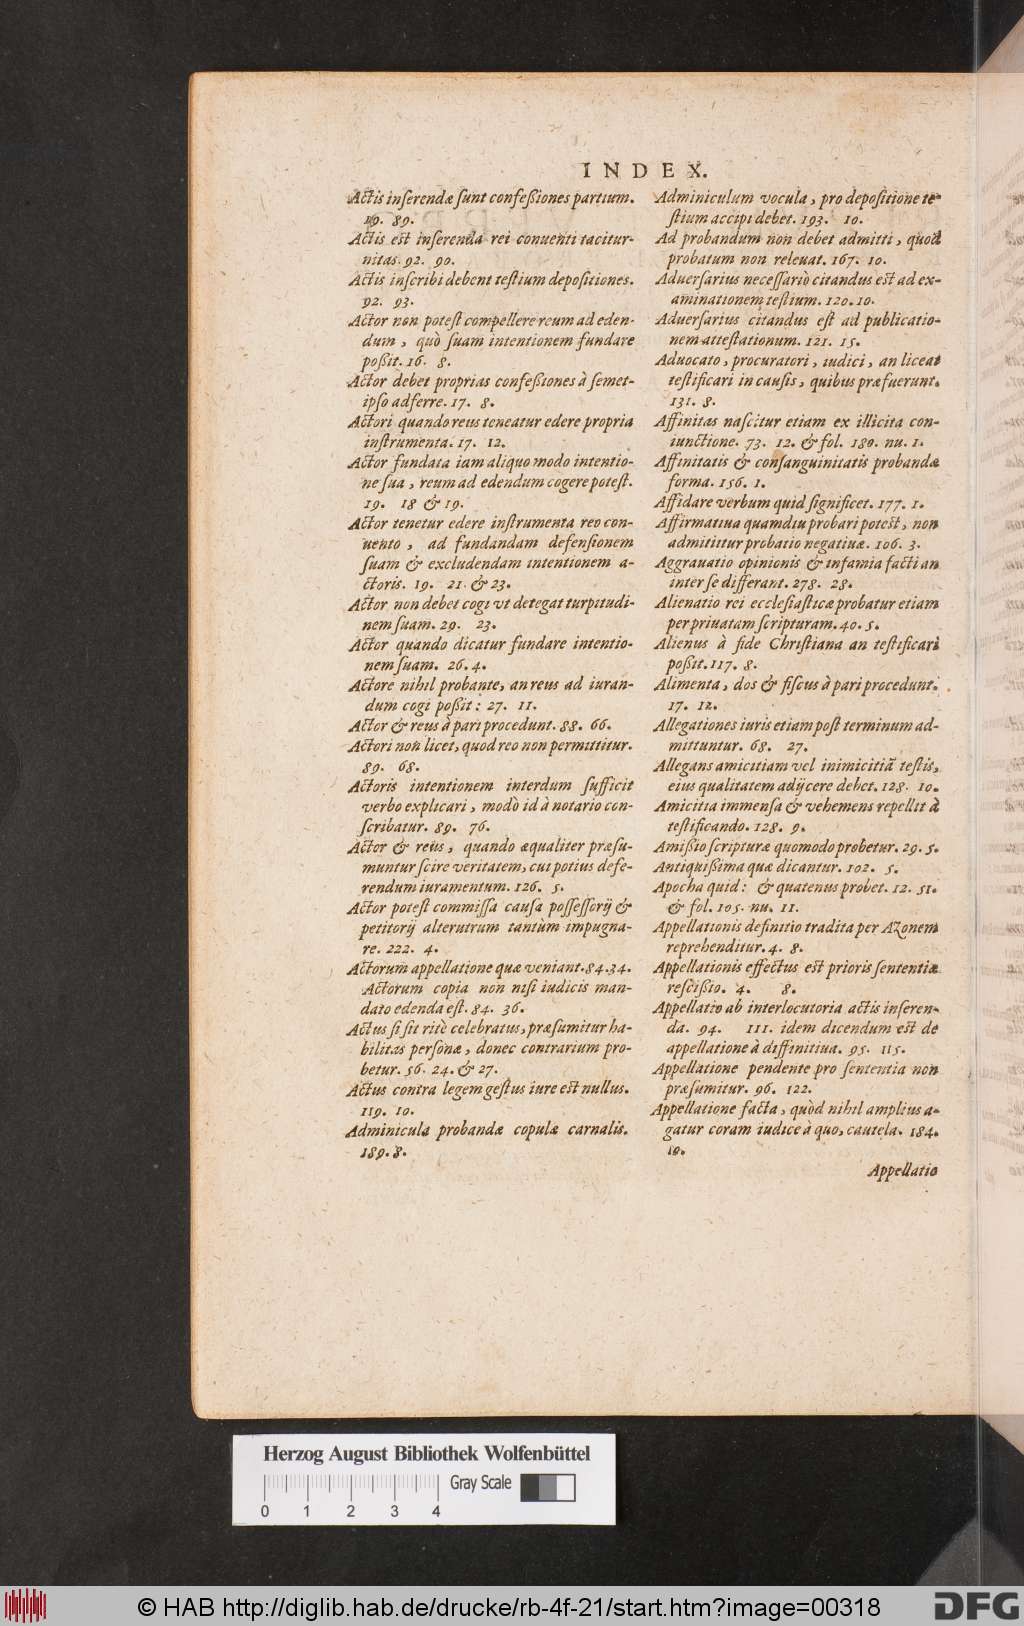 INDEX.
Actis inserendæ sunt confeßiones partium.
19. 89.
Actis est inserenda rei conuenti tacitur-
nitas. 92. 90.
Actis inscribi debent testium depositiones.
92. 93.
Actor non potest compellere reum ad eden-
dum, quò suam intentionem fundare
poßit. 16. 8.
Actor debet proprias confeßiones à semet-
ipso adferre. 17. 8.
Actori quando reus teneatur edere propria
instrumenta. 17. 12.
Actor fundata iam aliquo modo intentio-
ne sua, reum ad edendum cogere potest.
19. 18 & 19.
Actor tenetur edere instrumenta reo con-
uento, ad fundandam defensionem
suam & excludendam intentionem a-
ctoris. 19. 21. & 23.
Actor non debet cogi vt detegat turpitudi-
nem suam. 29. 23.
Actor quando dicatur fundare intentio-
nem suam. 26. 4.
Actore nihil probante, an reus ad iuran-
dum cogi poßit: 27. 11.
Actor & reus à pari procedunt. 88. 66.
Actori non licet, quod reo non permittitur.
89. 68.
Actoris intentionem interdum sufficit
verbo explicari, modò id à notario con-
scribatur. 89. 76.
Actor & reus, quando æqualiter præsu-
muntur scire veritatem, cui potius defe-
rendum iuramentum. 126. 5.
Actor potest commissa causa possessorij &
petitorij alterutrum tantùm impugna-
re. 222. 4.
Actorum appellatione quæ veniant. 84. 34.
Actorum copia non nisi iudicis man-
dato edenda est. 84. 36.
Actus si sit ritè celebratus, præsumitur ha-
bilitas personæ, donec contrarium pro-
betur. 56. 24. & 27.
Actus contra legem gestus iure est nullus.
119. 10.
Adminicula probandæ copulæ carnalis.
189. 8.
Adminiculum vocula, pro depositione te-
stium accipi debet. 193. 10.
Ad probandum non debet admitti, quod
probatum non releuat. 167. 10.
Aduersarius necessariò citandus est ad ex-
aminationem testium. 120. 10.
Aduersarius citandus est ad publicatio-
nem attestationum. 121. 15.
Aduocato, procuratori, iudici, an liceat
testificari in causis, quibus præfuerunt.
131. 8.
Affinitas nascitur etiam ex illicita con-
iunctione. 73. 12. & fol. 180. nu. 1.
Affinitatis & consanguinitatis probandæ
forma. 156. 1.
Affidare verbum quid significet. 177. 1.
Affirmatiua quamdiu probari potest, non
admittitur probatio negatiuæ. 106. 3.
Aggrauatio opinionis & infamia facti an
inter se differant. 278. 28.
Alienatio rei ecclesiasticæ probatur etiam
per priuatam scripturam. 40. 5.
Alienus à fide Christiana an testificari
poßit. 117. 8.
Alimenta, dos & fiscus à pari procedunt.
17. 12.
Allegationes iuris etiam post terminum ad-
mittuntur. 68. 27.
Allegans amicitiam vel inimicitiã testis,
eius qualitatem adijcere debet. 128. 10.
Amicitia immensa & vehemens repellit à
testificando. 128. 9.
Amißio scripturæ quomodo probetur. 29. 5.
Antiquißima quæ dicantur. 102. 5.
Apocha quid: & quatenus probet. 12. 51.
& fol. 105. nu. 11.
Appellationis definitio tradita per Azonem
reprehenditur. 4. 8.
Appellationis effectus est prioris sententiæ
rescißio. 4. 8.
Appellatio ab interlocutoria actis inseren-
da. 94. 111. idem dicendum est de
appellatione à diffinitiua. 95. 115.
Appellatione pendente pro sententia non
præsumitur. 96. 122.
Appellatione facta, quòd nihil amplius a-
gatur coram iudice à quo, cautela. 184.
10.
Appellatio
Herzog August Bibliothek Wolfenbüttel
Gray Scale
0 1 2 3 4
© HAB http://diglib.hab.de/drucke/rb-4f-21/start.htm?image=00318
DFG